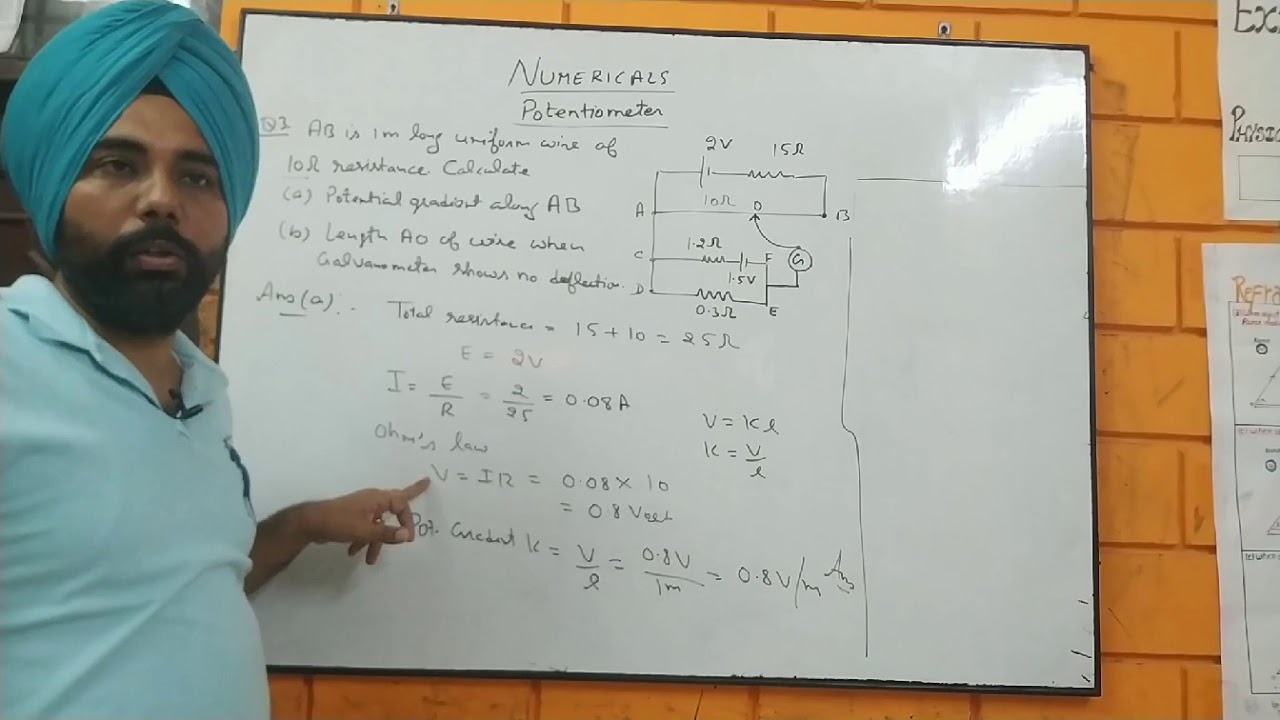 NUMERICALS
Potentiometer
Q3 AB is 1m long uniform wire of
10Ω resistance. Calculate
(a) Potential gradient along AB
(b) Length AO of wire when
Galvanometer shows no deflection.
2V 15Ω
A 10Ω O B
C 1.2Ω 1.5V F G
D 0.3Ω E
Ans (a):- Total resistance = 15 + 10 = 25Ω
E = 2V
I = E/R = 2/25 = 0.08A
Ohm's law
V = IR = 0.08 × 10
= 0.8 Volt
Pot. Gradient K = V/l = 0.8V/1m = 0.8V/m Ans
V = Kl
K = V/l
PHYSIC
REFRA